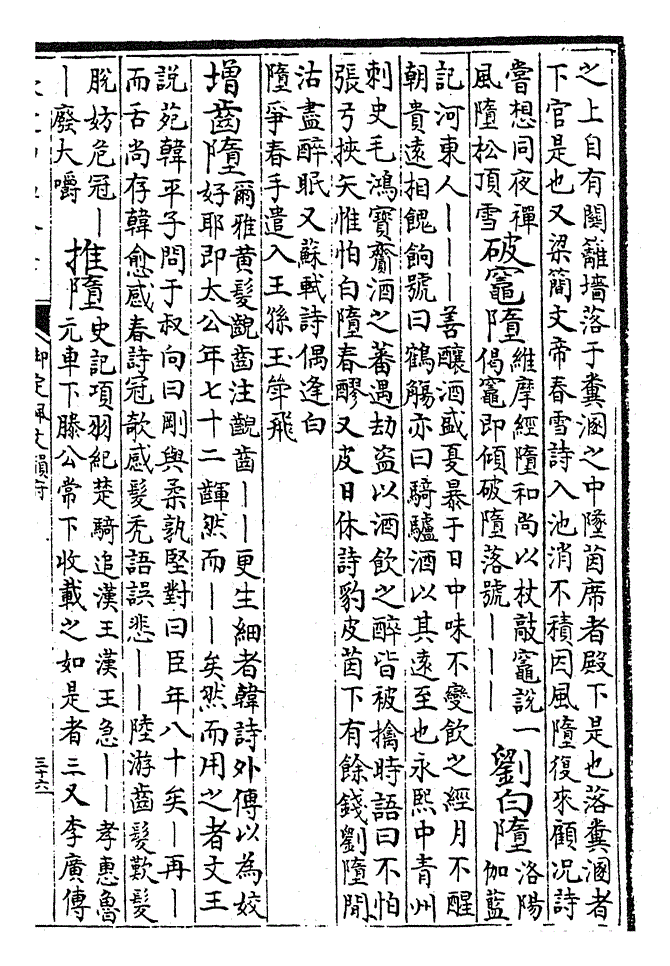 之上自有關籬墻落于糞溷之中墜茵席者殿下是也落糞溷者
下官是也又梁簡文帝春雪詩入池消不積因風墮復來顧况詩
嘗想同夜禪
風墮松頂雪
破竈墮
維摩經墮和尚以杖敲竈說一
偈竈即傾破墮落號｜｜｜
劉白墮
洛陽
伽藍
記河東人｜｜｜善釀酒盛夏暴于日中味不變飲之經月不醒
朝貴遠相餽餉號曰鶴觴亦曰騎驢酒以其遠至也永熙中青州
刺史毛鴻賓齎酒之蕃遇劫盗以酒飲之醉皆被擒時語曰不怕
張弓挾矢惟怕白墮春醪又皮日休詩豹皮茵下有餘錢劉墮閒
沽盡醉眠又蘇軾詩偶逢白
墮爭春手遣入王孫玉斝飛
增齒墮
爾雅黃髮齯齒注齯齒｜｜更生細者韓詩外傳以為姣
好耶即太公年七十二齳然而｜｜矣然而用之者文王
說苑韓平子問于叔向曰剛與柔孰堅對曰臣年八十矣｜再｜
而舌尚存韓愈感春詩冠欹感髮禿語誤悲｜｜陸游齒髮歎髮
脫妨危冠｜
｜廢大嚼
推墮
史記項羽紀楚騎追漢王漢王急｜｜孝惠魯
元車下滕公常下收載之如是者三又李廣傳
御定佩文韻府
三十六